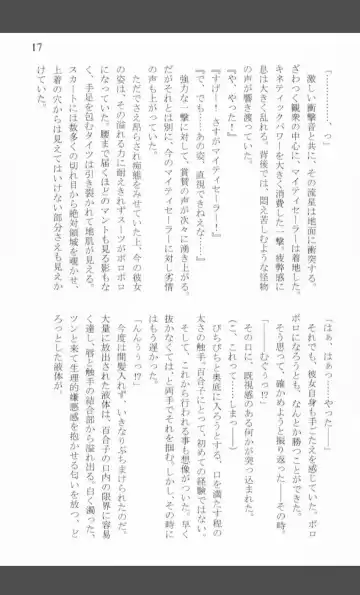 17
「………、っ」
激しい衝撃音と共に、その流星は地面に衝突する。
ざわつく観衆の中心に、マイティセーラーは着地した。
キネティックパワーを大きく消費した一撃、疲弊感に
息は大きく乱れる。背後では、悶え苦しむような怪物
の声が響き渡っていた。
『や、やった!』
『すげー! さすがマイティセーラー!』
『で、でも……あの姿、直視できねえな……』
強力な一撃に対して、賞賛の声が次々に湧き上がる。
だがそれとは別に、今のマイティセーラーに対し劣情
の声も上がっていた。
ただでさえ昂らされ痴態をみせていた上、今の彼女
の姿は、その溢れる力に耐えきれずスーツがボロボロ
になっていた。腰まで届くほどのマントも見る影もな
く、手足を包むタイツは引き裂かれて地肌が見える。
スカートには多数の切れ目から絶対領域を覗かせ、
上着の穴からは見えてはいけない部分さえも見えか
けていた。
「はぁ、はぁっ……やった……」
それでも、彼女自身も手ごたえを感じていた。ボロ
ボロになろうとも、なんとか勝つことができた。
そう思って、確かめようと振り返った――その時。
「――むぐぅっ!?」
その口に、既視感のある何かが突っ込まれた。
(こ、これって……しまっ――)
びちびちと奥底に入ろうとする、口を満たす程の
太さの触手。百合子にとって、初めての経験ではない。
そして、これから行われる事も想像がついた。早く
抜かなくては、と両手でそれを掴む。しかし、その時に
はもう遅かった。
「んんぅぅっ!?」
今度は間髪入れず、いきなりぶちまけられたのだ。
大量に放出された液体は、百合子の口内の限界に容易
く達し、唇と触手の結合部から溢れ出る。白く濁った、
ツンと来て生理的嫌悪感を抱かせる匂いを放つ、ど
ろっとした液体が。